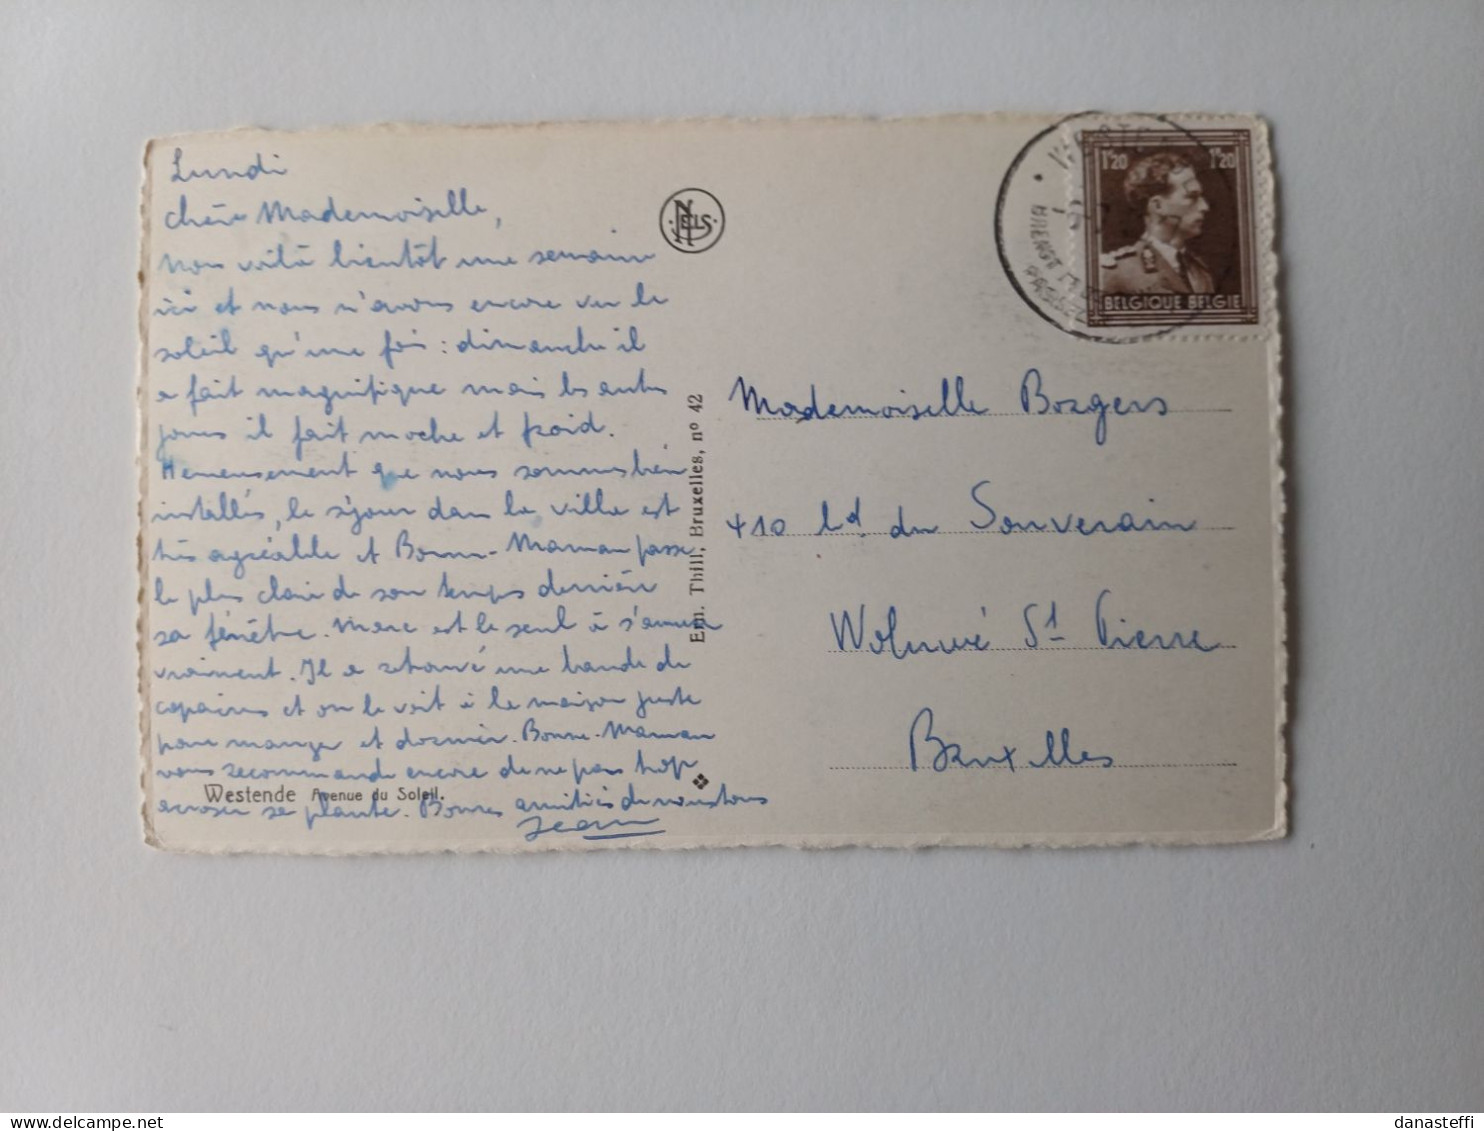 Lundi
Chère Mademoiselle,
Nous voilà bientôt une semaine
ici et nous n'avons encore vu le
soleil qu'une fois : dimanche il
a fait magnifique mais les autres
jours il fait moche et froid.
Heureusement que nous sommes bien
installés, le séjour dans la villa est
très agréable et Bonne-Maman passe
le plus clair de son temps derrière
sa fenêtre. Marc est le seul à s'amuser
vraiment. Il a retrouvé une bande de
copains et on le voit à la maison juste
pour manger et dormir. Bonne-Maman
vous recommande encore de ne pas trop
arroser sa plante. Bonnes amitiés de nous tous
Jean
Westende Avenue du Soleil.
NELS
Em. Thill, Bruxelles, n° 42
1F20 1F20
BELGIQUE BELGIE
Mademoiselle Borgers
410 bd du Souverain
Woluwé St Pierre
Bruxelles
danasteffi